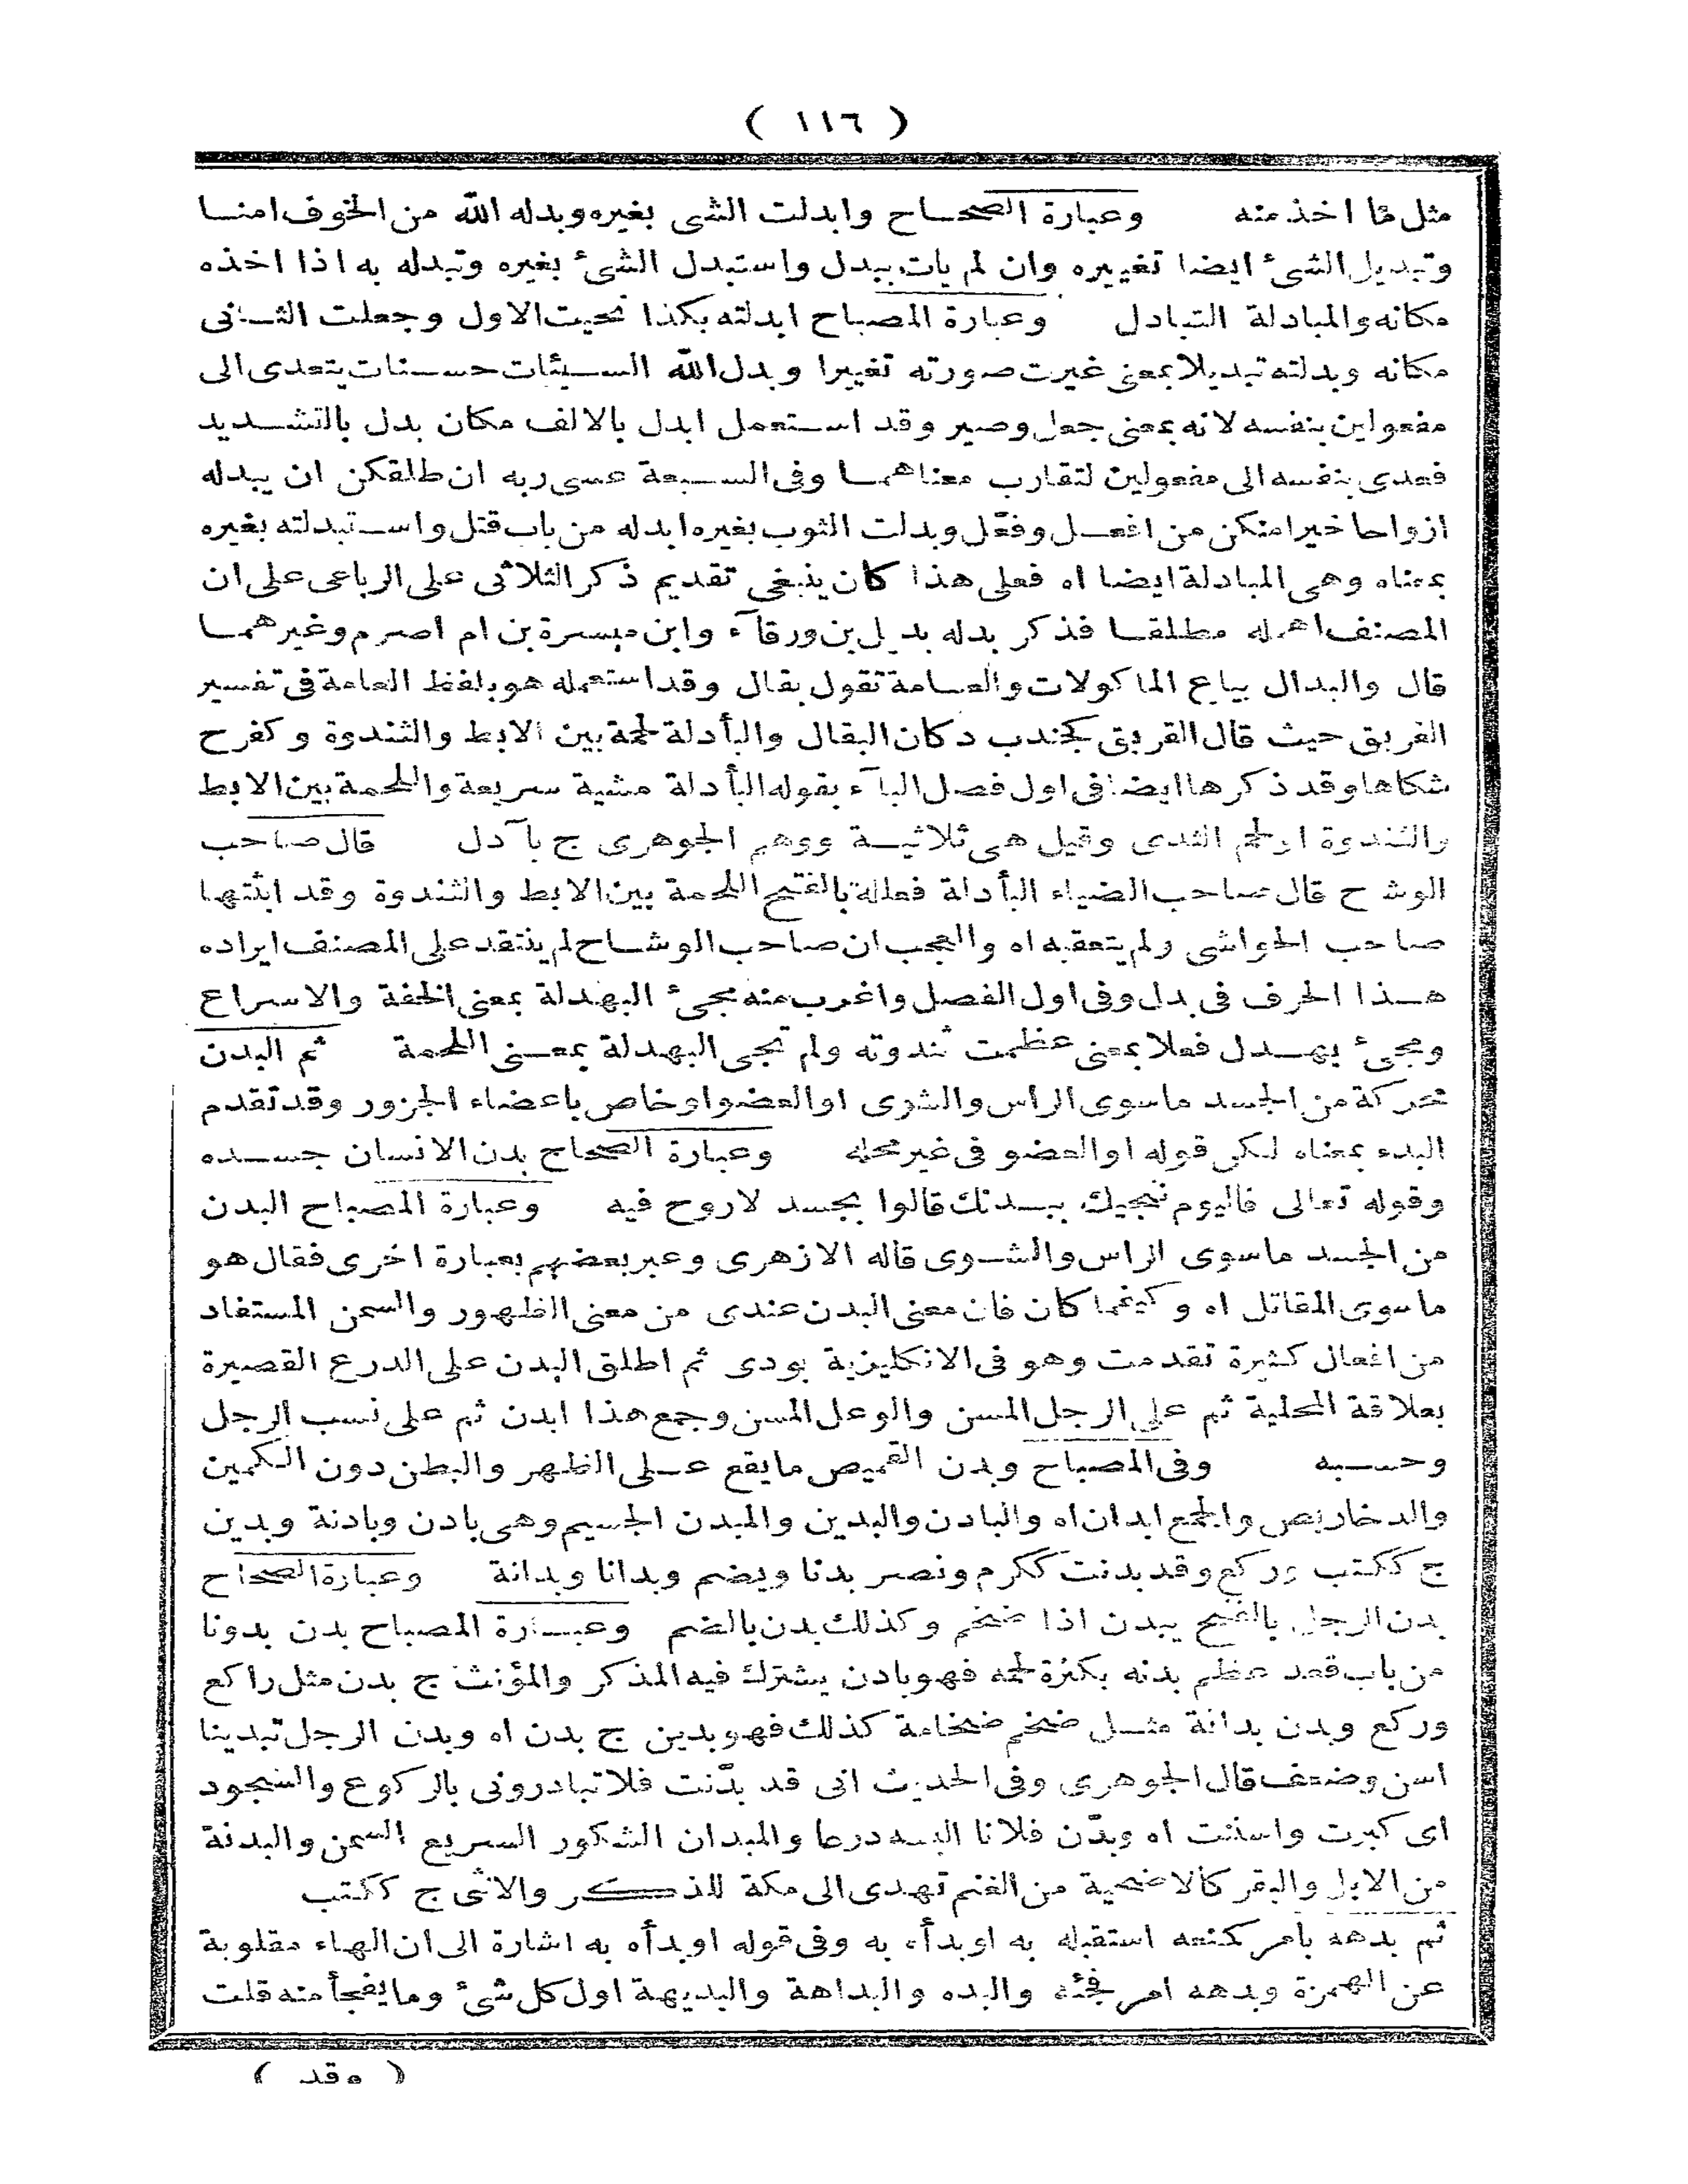 ( ١١٦ )
مثل ما اخذ منه وعبارة الصحــاح وابدلت الشى بغيره وبدله الله من الخوف امنــا
وتبديل الشىء ايضا تغييره وان لم يات ببدل واستبدل الشىء بغيره وتبدله به اذا اخذه
مكانه والمبادلة التبادل وعبارة المصباح ابدلته بكذا نحيت الاول وجعلت الثــانى
مكانه وبدلته تبديلا بمعنى غيرت صورته تغييرا وبدل الله الســيئات حســنات يتعدى الى
مفعولين بنفسه لانه بمعنى جعل وصير وقد اســتعمل ابدل بالالف مكان بدل بالتشــديد
فعدى بنفسه الى مفعولين لتقارب معناهمــا وفى الســبعة عسى ربه ان طلقكن ان يبدله
ازواجا خيرا منكن من افعــل وفعّل وبدلت الثوب بغيره ابدله من باب قتل واســتبدلته بغيره
بمعناه وهى المبادلة ايضا اه فعلى هذا كان ينبغى تقديم ذكر الثلاثى على الرباعى على ان
المصنف اهمله مطلقــا فذكر بدله بديل بن ورقآء وابن ميسرة بن ام اصرم وغيرهمــا
قال والبدال بياع الماكولات والعــامة تقول بقال وقد استعمله هو بلفظ العامة فى تفسير
الفربق حيث قال القربق كجندب دكان البقال والبأدلة لحمة بين الابط والثندوة وكفرح
شكاها وقد ذكرها ايضا فى اول فصل البآء بقوله البأدلة مشية سريعة واللحمة بين الابط
والثندوة او لحم الثدى وقيل هى ثلاثيــة ووهم الجوهرى ج بآدل قال صاحب
الوشح قال صاحب الضياء البأدلة فعللة بالفتح اللحمة بين الابط والثندوة وقد اثبتها
صاحب الحواشى ولم يتعقبه اه والعجب ان صاحب الوشــاح لم ينتقد على المصنف ايراده
هــذا الحرف فى بدل وفى اول الفصل واغرب منه مجىء البهدلة بمعنى الخفة والاسراع
ومجىء بهــدل فعلا بمعنى عظمت ثندوته ولم تجى البهدلة بمعــنى اللحمة ثم البدن
محركة من الجسد ماسوى الراس والشوى او العضو او خاص باعضاء الجزور وقد تقدم
البدء بمعناه لكن قوله او العضو فى غير محله وعبارة الصحاح بدن الانسان جســده
وقوله تعالى فاليوم ننجيك ببــدنك قالوا بجسد لا روح فيه وعبارة المصباح البدن
من الجسد ماسوى الراس والشــوى قاله الازهرى وعبر بعضهم بعبارة اخرى فقال هو
ماسوى المقاتل اه وكيفما كان فان معنى البدن عندى من معنى الظهور والسمن المستفاد
من افعال كثيرة تقدمت وهو فى الانكليزية بودى ثم اطلق البدن على الدرع القصيرة
بعلاقة المحلية ثم على الرجل المسن والوعل المسن وجمع هذا ابدن ثم على نسب الرجل
وحســبه وفى المصباح وبدن القميص ما يقع عــلى الظهر والبطن دون الكمين
والدخاريص والجمع ابدان اه والبادن والبدين والمبدن الجسيم وهى بادن وبادنة وبدين
ج ككتب وركع وقد بدنت ككرم ونصر بدنا ويضم وبدانا وبدانة وعبارة الصحاح
بدن الرجل بالفتح يبدن اذا ضخم وكذلك بدن بالضم وعبــارة المصباح بدن بدونا
من باب قعد عظم بدنه بكثرة لحمه فهو بادن يشترك فيه المذكر والمؤنث ج بدن مثل راكع
وركع وبدن بدانة مثــل ضخم ضخامة كذلك فهو بدين ج بدن اه وبدن الرجل تبدينا
اسن وضعف قال الجوهرى وفى الحديث انى قد بدّنت فلا تبادرونى بالركوع والسجود
اى كبرت واسننت اه وبدّن فلانا البسه درعا والمبدان الشكور السريع السمن والبدنة
من الابل والبقر كالاضحية من الغنم تهدى الى مكة للذكر والانثى ج ككتب
ثم بدهه بامر كمنعه استقبله به او بدأه به وفى قوله او بدأه به اشارة الى ان الهاء مقلوبة
عن الهمزة وبدهه امر فجئه والبده والبداهة والبديهة اول كل شىء وما يفجأ منه قلت
( وقد )